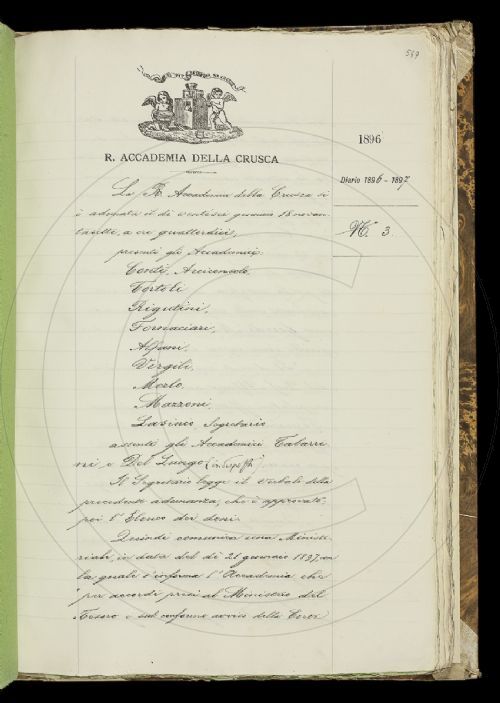 569
R. ACCADEMIA DELLA CRUSCA
1896
Diario 1896 - 1897
N.° 3.
La R. Accademia della Crusca si
è adunata il dì ventisei gennaio
a ore quattordici,
presenti gli Accademici
Conti, Arciconsolo
Tortoli
Rigutini,
Fornaciari,
Alfani,
Vergili,
Merlo,
Mazzoni,
Lasinio Segretario
assenti gli Accademici Tabarri
ni e Del Lungo
Il Segretario legge il verbale della
precedente adunanza, che è approvato;
poi l'Elenco dei doni.
Quindi comunica una Ministe
riale, in data del dì 21 gennaio 1897, con
la quale s'informa l'Accademia che
"per accordi presi col Ministero del
Tesoro e sul conforme avviso della Corte